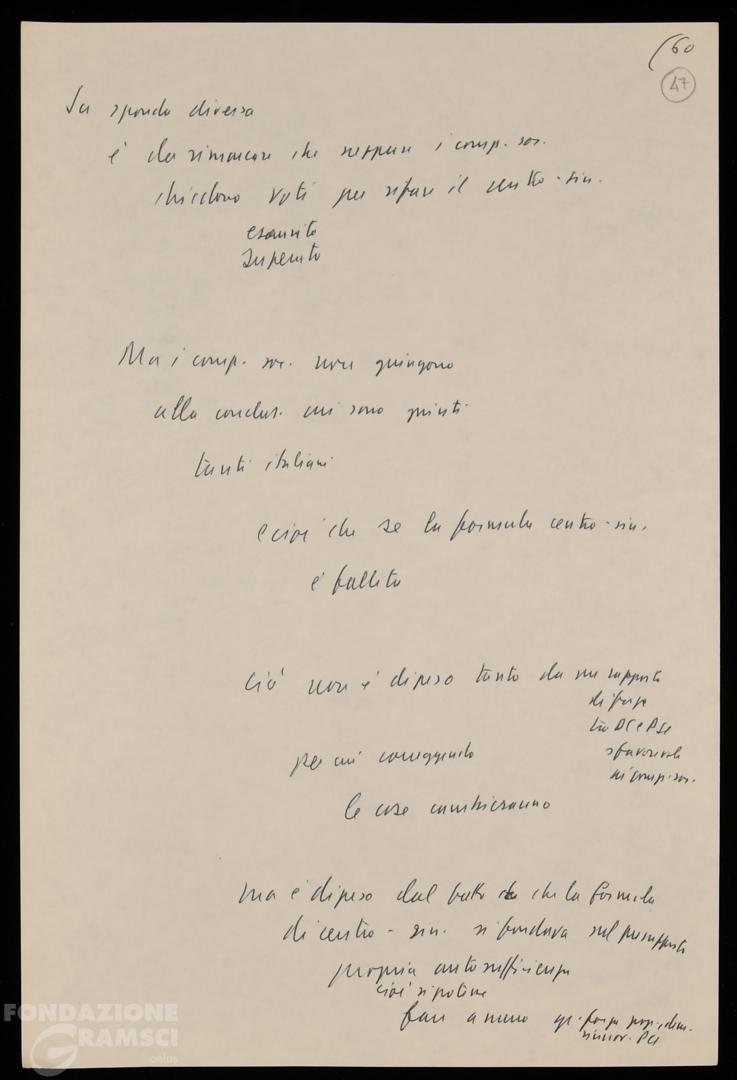 60
47
Su sponda diversa
è da rimarcare che neppure i comp. soc.
chiedono voti per rifare il centro-sin.
esaurito
superato
Ma i comp. soc. non giungono
alla conclus. cui sono giunti
tanti italiani
e cioè che se la formula centro-sin.
è fallita
Ciò non è dipeso tanto da un rapporto
di forze
tra DC e PSI
sfavorevole
ai comp. soc.
per cui correggendo
le cose cambieranno
ma è dipeso dal fatto che la formula
di centro-sin. si fondava sul presupposto
propria autosufficienza
cioè si poteva
fare a meno forze pop. e dem.
PCI
FONDAZIONE
GRAMSCI
onlus